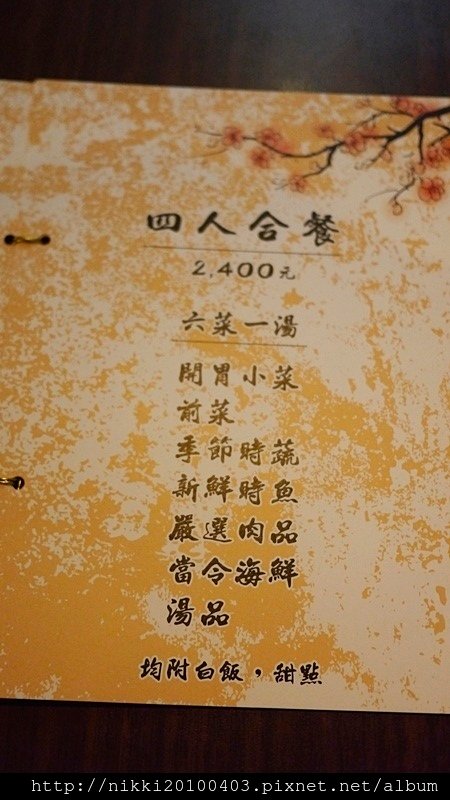 四人合餐
2,400元
六菜一湯
開胃小菜
前菜
季節時蔬
新鮮時魚
嚴選肉品
當令海鮮
湯品
均附白飯，甜點
http://nikki20100403.pixnet.net/album